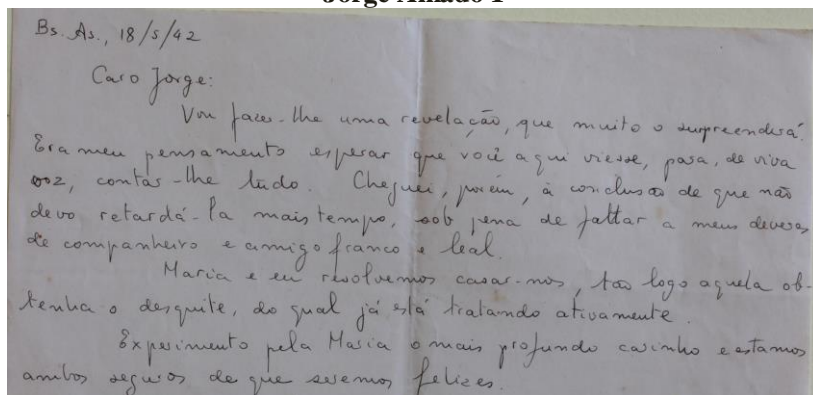 Jorge Amado 1
Bs. As., 18/5/42
Caro Jorge:
Vou fazer-lhe uma revelação, que muito o surpreenderá.
Era meu pensamento esperar que você aqui viesse, para, de viva
voz, contar-lhe tudo. Cheguei, porém, à conclusão de que não
devo retardá-la mais tempo, sob pena de faltar a meus deveres
de companheiro e amigo franco e leal.
Maria e eu resolvemos casar-nos, tão logo aquela ob-
tenha o desquite, do qual já está tratando ativamente.
Experimento pela Maria o mais profundo carinho e estamos
ambos seguros de que seremos felizes.